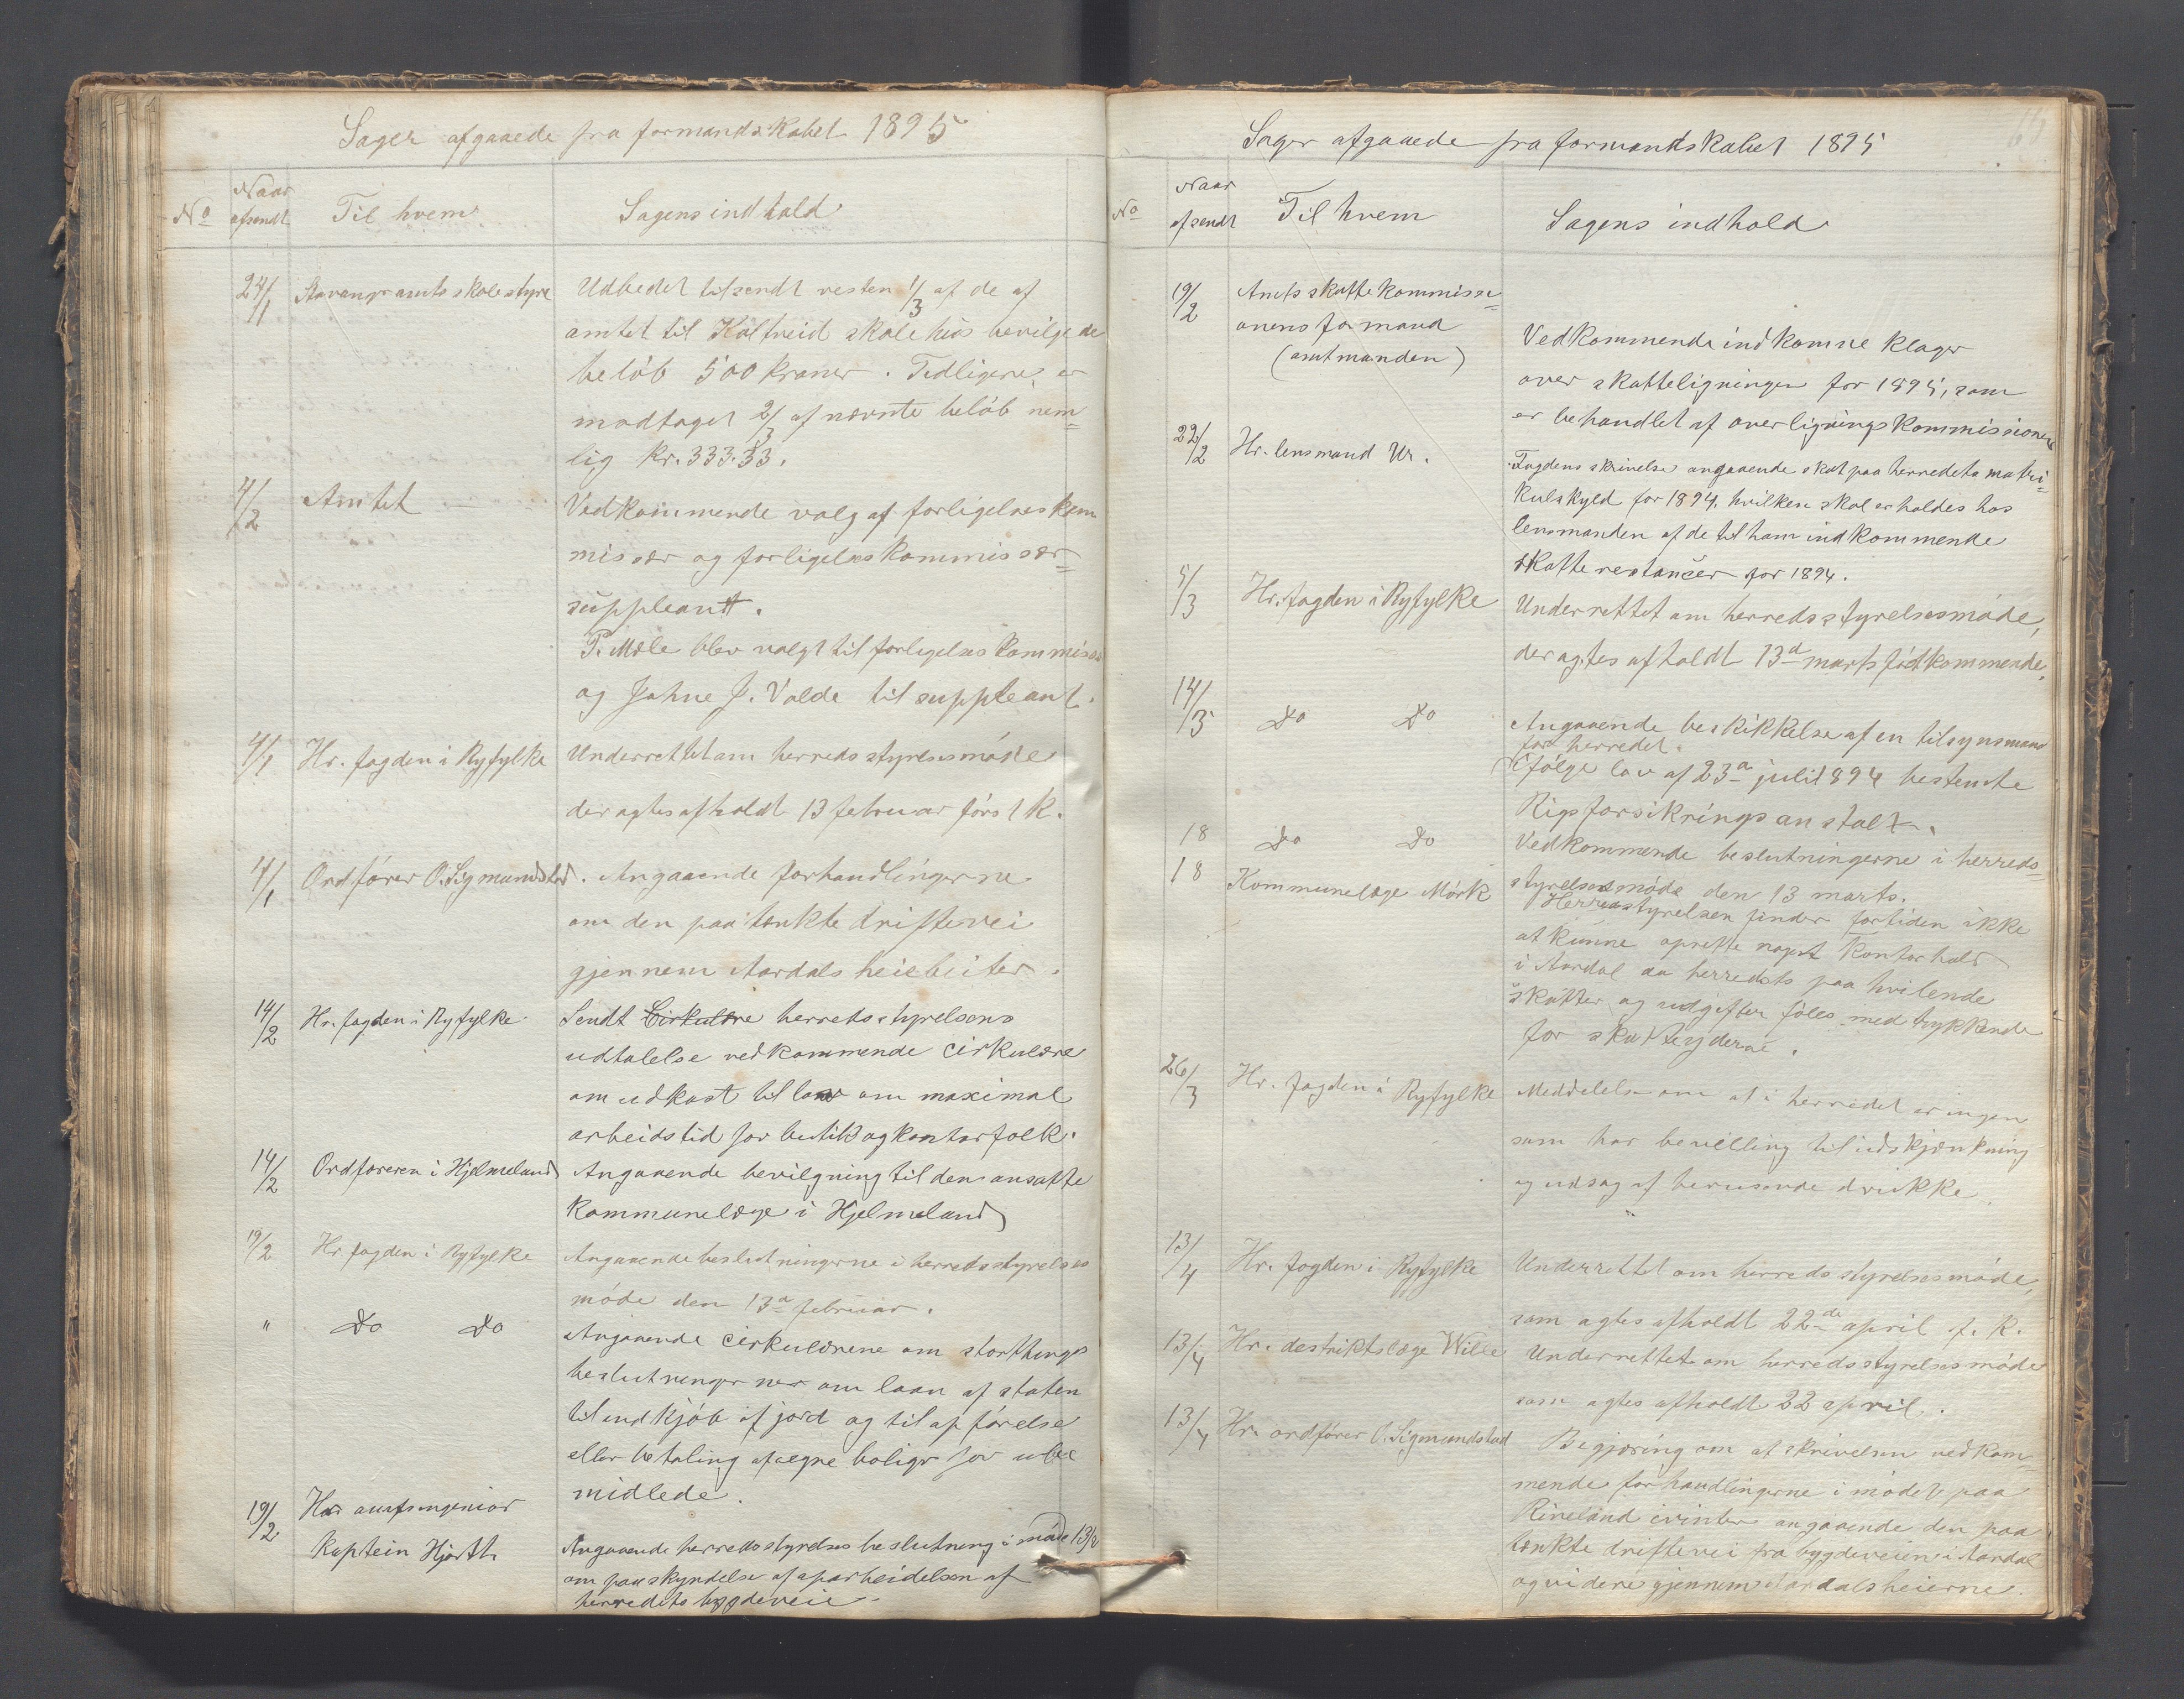 Sager afgaaede fra formandskabet 1895
No
Naar afsendt
Til hvem
Sagens indhold
24/1 Stavanger amts skolestyre Udbedet tilsendt resten 1/3 af de af
amtet til Kaltveid skolehus bevilgede
beløb 500 kroner. Tidligere er
modtaget 2/3 af nævnte beløb nem=
lig kr. 333.33.
4/2 Amtet Vedkommende valg af forligelseskom
missær og forligelseskommissær=
suppleant.
P. Mæle blev valgt til forligelseskommissær
og Johne J. Valde til suppleant.
4/1 Hr. fogden i Ryfylke Underrettet om herredsstyresmøde
der agtes afholdt 13 februar først k.
4/1 Ordfører O. Sigmundstad. Angaaende forhandlingerne
om den paatænkte driftevei
gjennem Aardals heiebeiter.
14/2 Hr. fogden i Ryfylke Sendt Cirkulære herredsstyrelsens
udtalelse vedkommende cirkulære
om udkast til lov om maximal
arbeidstid for butik og kontorfolk.
14/2 Ordføreren i Hjelmeland Angaaende bevilgning til den ansatte
kommunelæge i Hjelmeland
19/2 Hr. fogden i Ryfylke Angaaende beslutningerne i herredsstyrelses
møde den 13a februar.
" Do Do Angaaende cirkulærene om storthings
beslutninger ner om laan af staten
til indkjøb af jord og til opførelse
eller betaling af egne boliger for ube
midlede.
19/2 Hr amtsingeniør
kaptein Hjorth Angaaende herredsstyrelses beslutning i møde 13/2
om paaskyndelse af oparbeidelsen af
herredets bygdeveie.
Sager afgaaede fra formandskabet 1895
No
Naar afsendt
Til hvem
Sagens indhold
19/2 Amtsskattekommissi=
onens formand
(amtmanden)
Vedkommende indkomne klager
over skatteligningen for 1895, som
er behandlet af overligningskommissionen
22/2 Hr. lensmand Ur. Fogdens skrivelse angaaende skat paa herredets matri=
kulskyld for 1894, hvilken skal erholdes hos
lensmanden af de til ham indkommende
skatterestancer for 1894.
5/3 Hr. fogden i Ryfylke Underrettet om herredsstyrelsesmøde,
der agtes afholdt 13d marts førstkommende.
14/3 Do Do Angaaende beskikkelse af en tilsynsmand
for herredet.
ifølge lov af 23a juli 1894 bestemte
Rigsforsikringsanstalt.
18 Do Do Vedkommende beslutningerne i herreds=
styrelsesmøde den 13 marts.
18 Kommunelæge Mørk Herredsstyrelsen finder fortiden ikke
at kunne oprette noget kontorhold
i Aardal da herredets paa hvilende
skatter og udgifter føles medtrykkende
for skatteyderne.
26/3 Hr. fogden i Ryfylke Meddelelse om at i herredet er ingen
som har bevilling til udskjænkning
og udsag af berusende drikke.
13/4 Hr. fogden i Ryfylke Underrettet om herredsstyrelsesmøde,
som agtes afholdt 22de april f. k.
13/4 Hr. destriktslæge Wille Underrettet om herredsstyrelsesmøde
som agtes afholdt 22 april.
13/4 Hr. ordfører O. Sigmundstad Begjæring om at skrivelsen vedkom=
mende forhandlingerne i mødet paa
Rineland ivinter angaaende den paa
tænkte driftevei fra bygdeveien i Aardal
og videre gjennem Aardalsheierne.